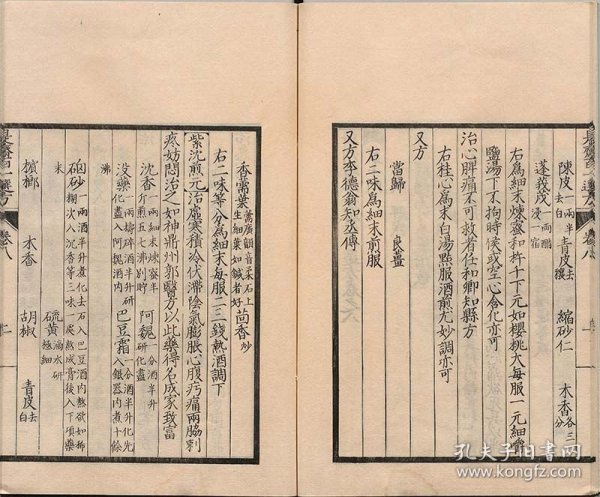 陳皮一兩半去白 青皮去穰 縮砂仁 木香各三分
蓬莪茂一兩醋浸一宿
右為細末煉蜜和杵千下元如櫻桃大每服一元細嚼
鹽湯下不拘時候或空心含化亦可
治心脾痛不可救者任和卿知縣方
右桂心為末白湯點服酒煎尤妙調亦可
又方
當歸 良薑
右二味為細末煎服
又方李德翁知丞傳
香需葉 茴香炒
右二味等分為細末每服二三錢熱酒調下
紫沈煎元治虛寒積冷伏滯陰氣膨脹心腹㽲痛兩脇刺
疼妨悶治之如神鼎州郭醫方以此藥得名成家致富
沈香 阿魏
没藥 巴豆霜
沸
硇砂 硫黃
末
檳榔 木香 胡椒 青皮去白
孔夫子旧书网
www.kongfz.com